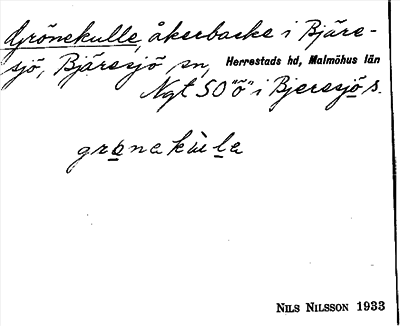 Grönekulle, åkerbacke i Bjäre-
sjö, Bjäresjö sn, Herrestads hd, Malmöhus län
Ngt SO "ö" i Bjeresjö s.
grønakùla
NILS NILSSON 1933